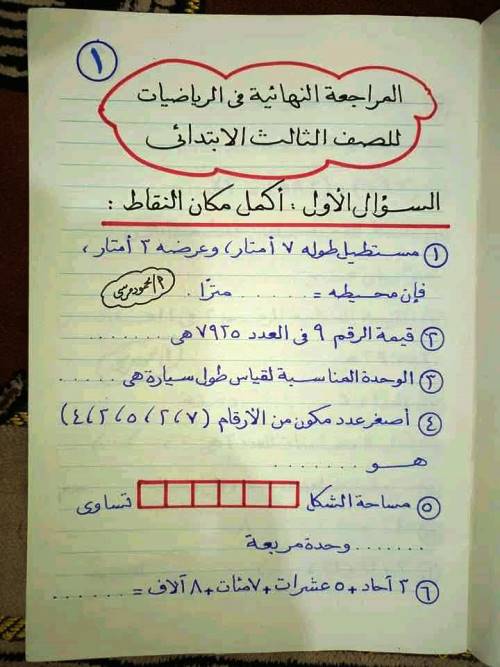 ١
المراجعة النهائية فى الرياضيات
للصف الثالث الابتدائى
السؤال الأول : أكمل مكان النقاط :
١ مستطيل طوله ٧ أمتار، وعرضه ٢ أمتار،
فإن محيطه = ........ مترًا . م/محمود مرسى
٢ قيمة الرقم ٩ فى العدد ٧٩٢٥ هى ........
٣ الوحدة المناسبة لقياس طول سيارة هى .....
٤ أصغر عدد مكون من الأرقام (٤،٢،٥،٢،٧)
هو .......
٥ مساحة الشكل تساوى
....... وحدة مربعة
٦ ٢ آحاد + ٥ عشرات + ٧ مئات + ٨ آلاف = .......